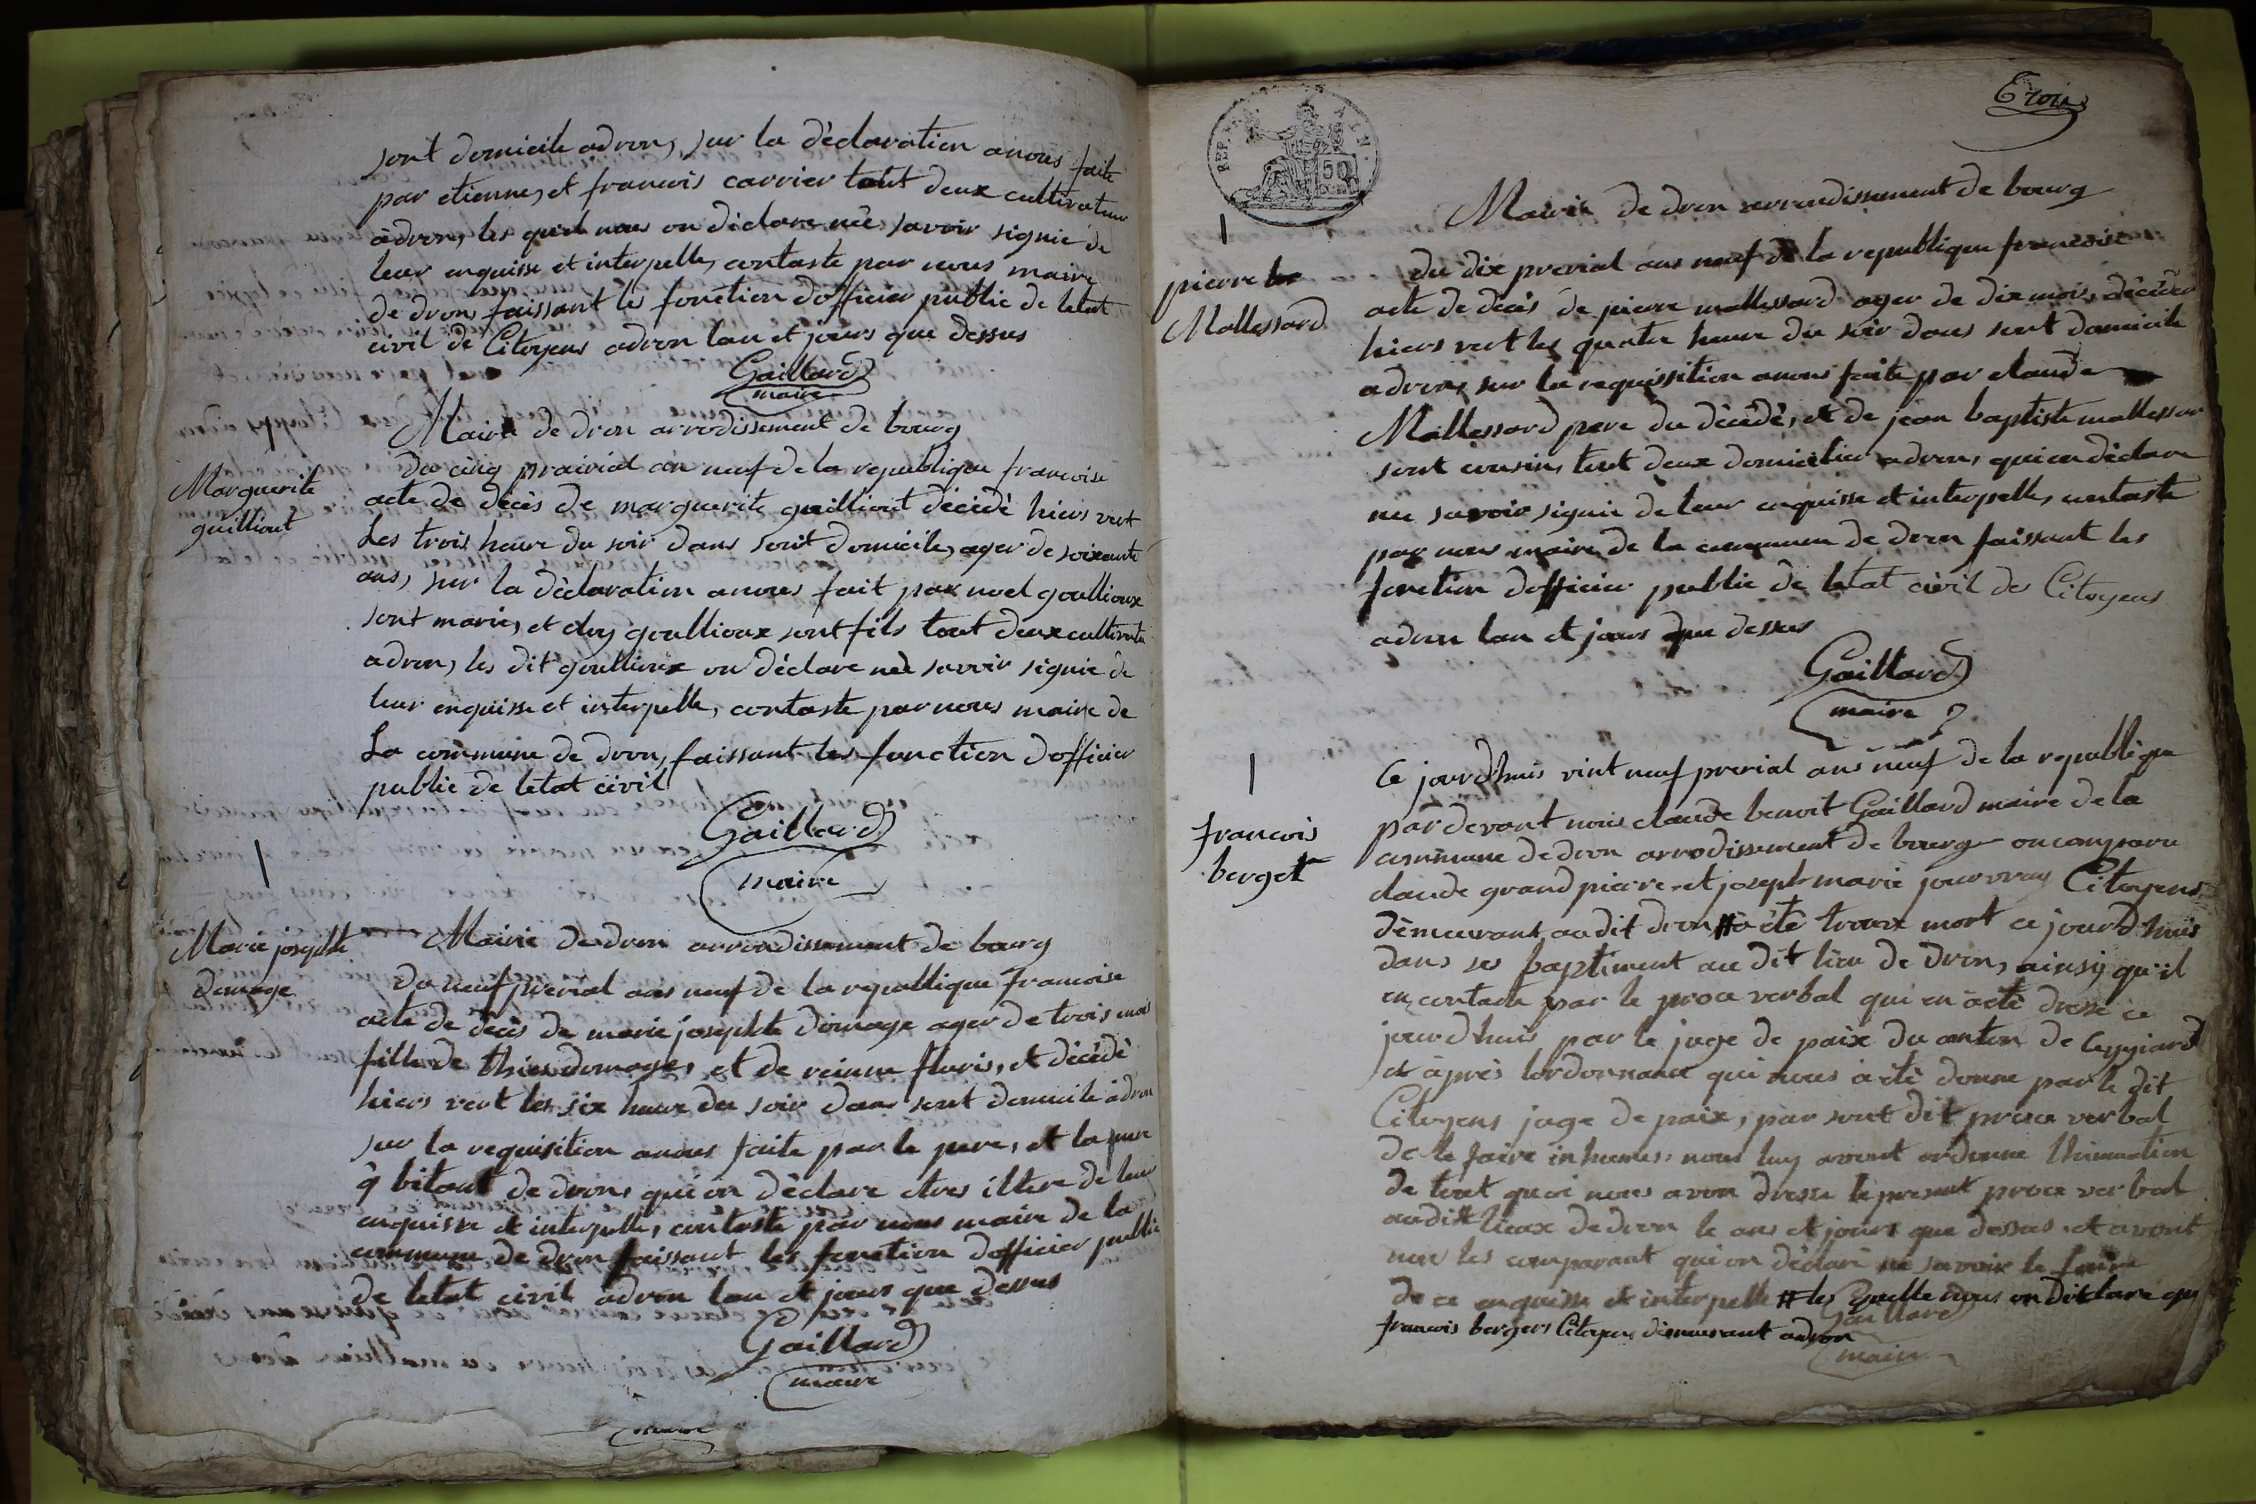 sont domicile adron, sur la déclaration anous faite
par etienne, et francois carrier tout deux cultivateur
àdron, les quel nous on déclare nès savoir signié de
leur enquisse et interpelle, contaste par nous maire
de dron, faissant les fonction dofficier public de letat
civil de Citoyens adron lan et jours que dessus
Gaillard
maire
Mairie de dron arrodissement de bourg
Marguerite
guilliout
du cinq prairial an neuf de la republique francoise
acte de décès de marguerite guilliout décédé hiers vert
Les trois heure du soir dans sont domicile, ager de soixante
ans, sur la déclaration anous fait par noel goullioux
sont marie, et eloy goullioux sont fils tout deux cultivate
adron, les dit goullioux on déclare nèe savoir signié de
leur enquisse et interpelle, contaste par nous maire de
La commune de dron, faissant les fonction dofficier
public de letat civil
Gaillard
maire
Marie josephte
domage
Mairie de dron arrondissement de bourg
du neuf prerial ans neuf de la republique francoise
acte de décès de marie josephte domage ager de trois mois
fille de thies domage, et de reinne fluris, et décédé
hiers vert les six heure du soir dans sont domicile àdron
sur la requisition anous faite par le pere, et la mere
q bitant de dron, qui on déclare etres iltere de leur
enquisse et interpelle, contaste par nous maire de la
commune de dron faissant les fonction dofficier public
de letat civil adron lan et jours que dessus
Gaillard
maire
maire
Trois
REP. FRA.
50
Mairie de dron arrondissement de bourg
pierre
Mallessard
du dix prerial ans neuf de la republique francoise
acte de décès de pierre mallessard ager de dix mois, décéder
hiers vert les quatre heure du soir dans sont domicile
adron, sur la requissition anous faite par claude
Mallessard pere du décédé, et de jean baptiste mallessar
sont cousin, tout deux domicilier adron, qui on déclare
nee savoir signié de leur enquisse et interpelle, contaste
par nous maire de la commune de dron faissant les
fonction dofficier public de letat civil des Citoyens
adron lan et jours que dessus
Gaillard
maire
francois
berget
Ce jourdhuis vint neuf prerial ans neuf de la republique
pardevant nous claude benoit Gaillard maire de la
commune de dron arrodissement de bourg on comparu
claude grand pierre et joseph marie jourvray Citoyens
démeurant audit dron # a été trouve mort ce jourdhuis
dans ses baptiment au dit lieu de dron, ainsy qu'il
en contaste par le proce verbal qui en àété dressé ce
jourdhuis par le juge de paix du canton de Ceyziard
et àprès lordonnance qui nous àété donne par le dit
Citoyens juge de paix, par sont dit proce verbal
de le faire inhumer, nous luy avont ordonne lhinmation
de tout quoi nous avon dresse le present proce verbal
audit lieux de dron le ans et jours que dessus et avont
nou les comparant qui on déclaré ne savoir le faire
de ce enquisse et interpelle # les quelle nous on ditclare que
francois bergers Citoyens démeurant adron
Gaillard
maire